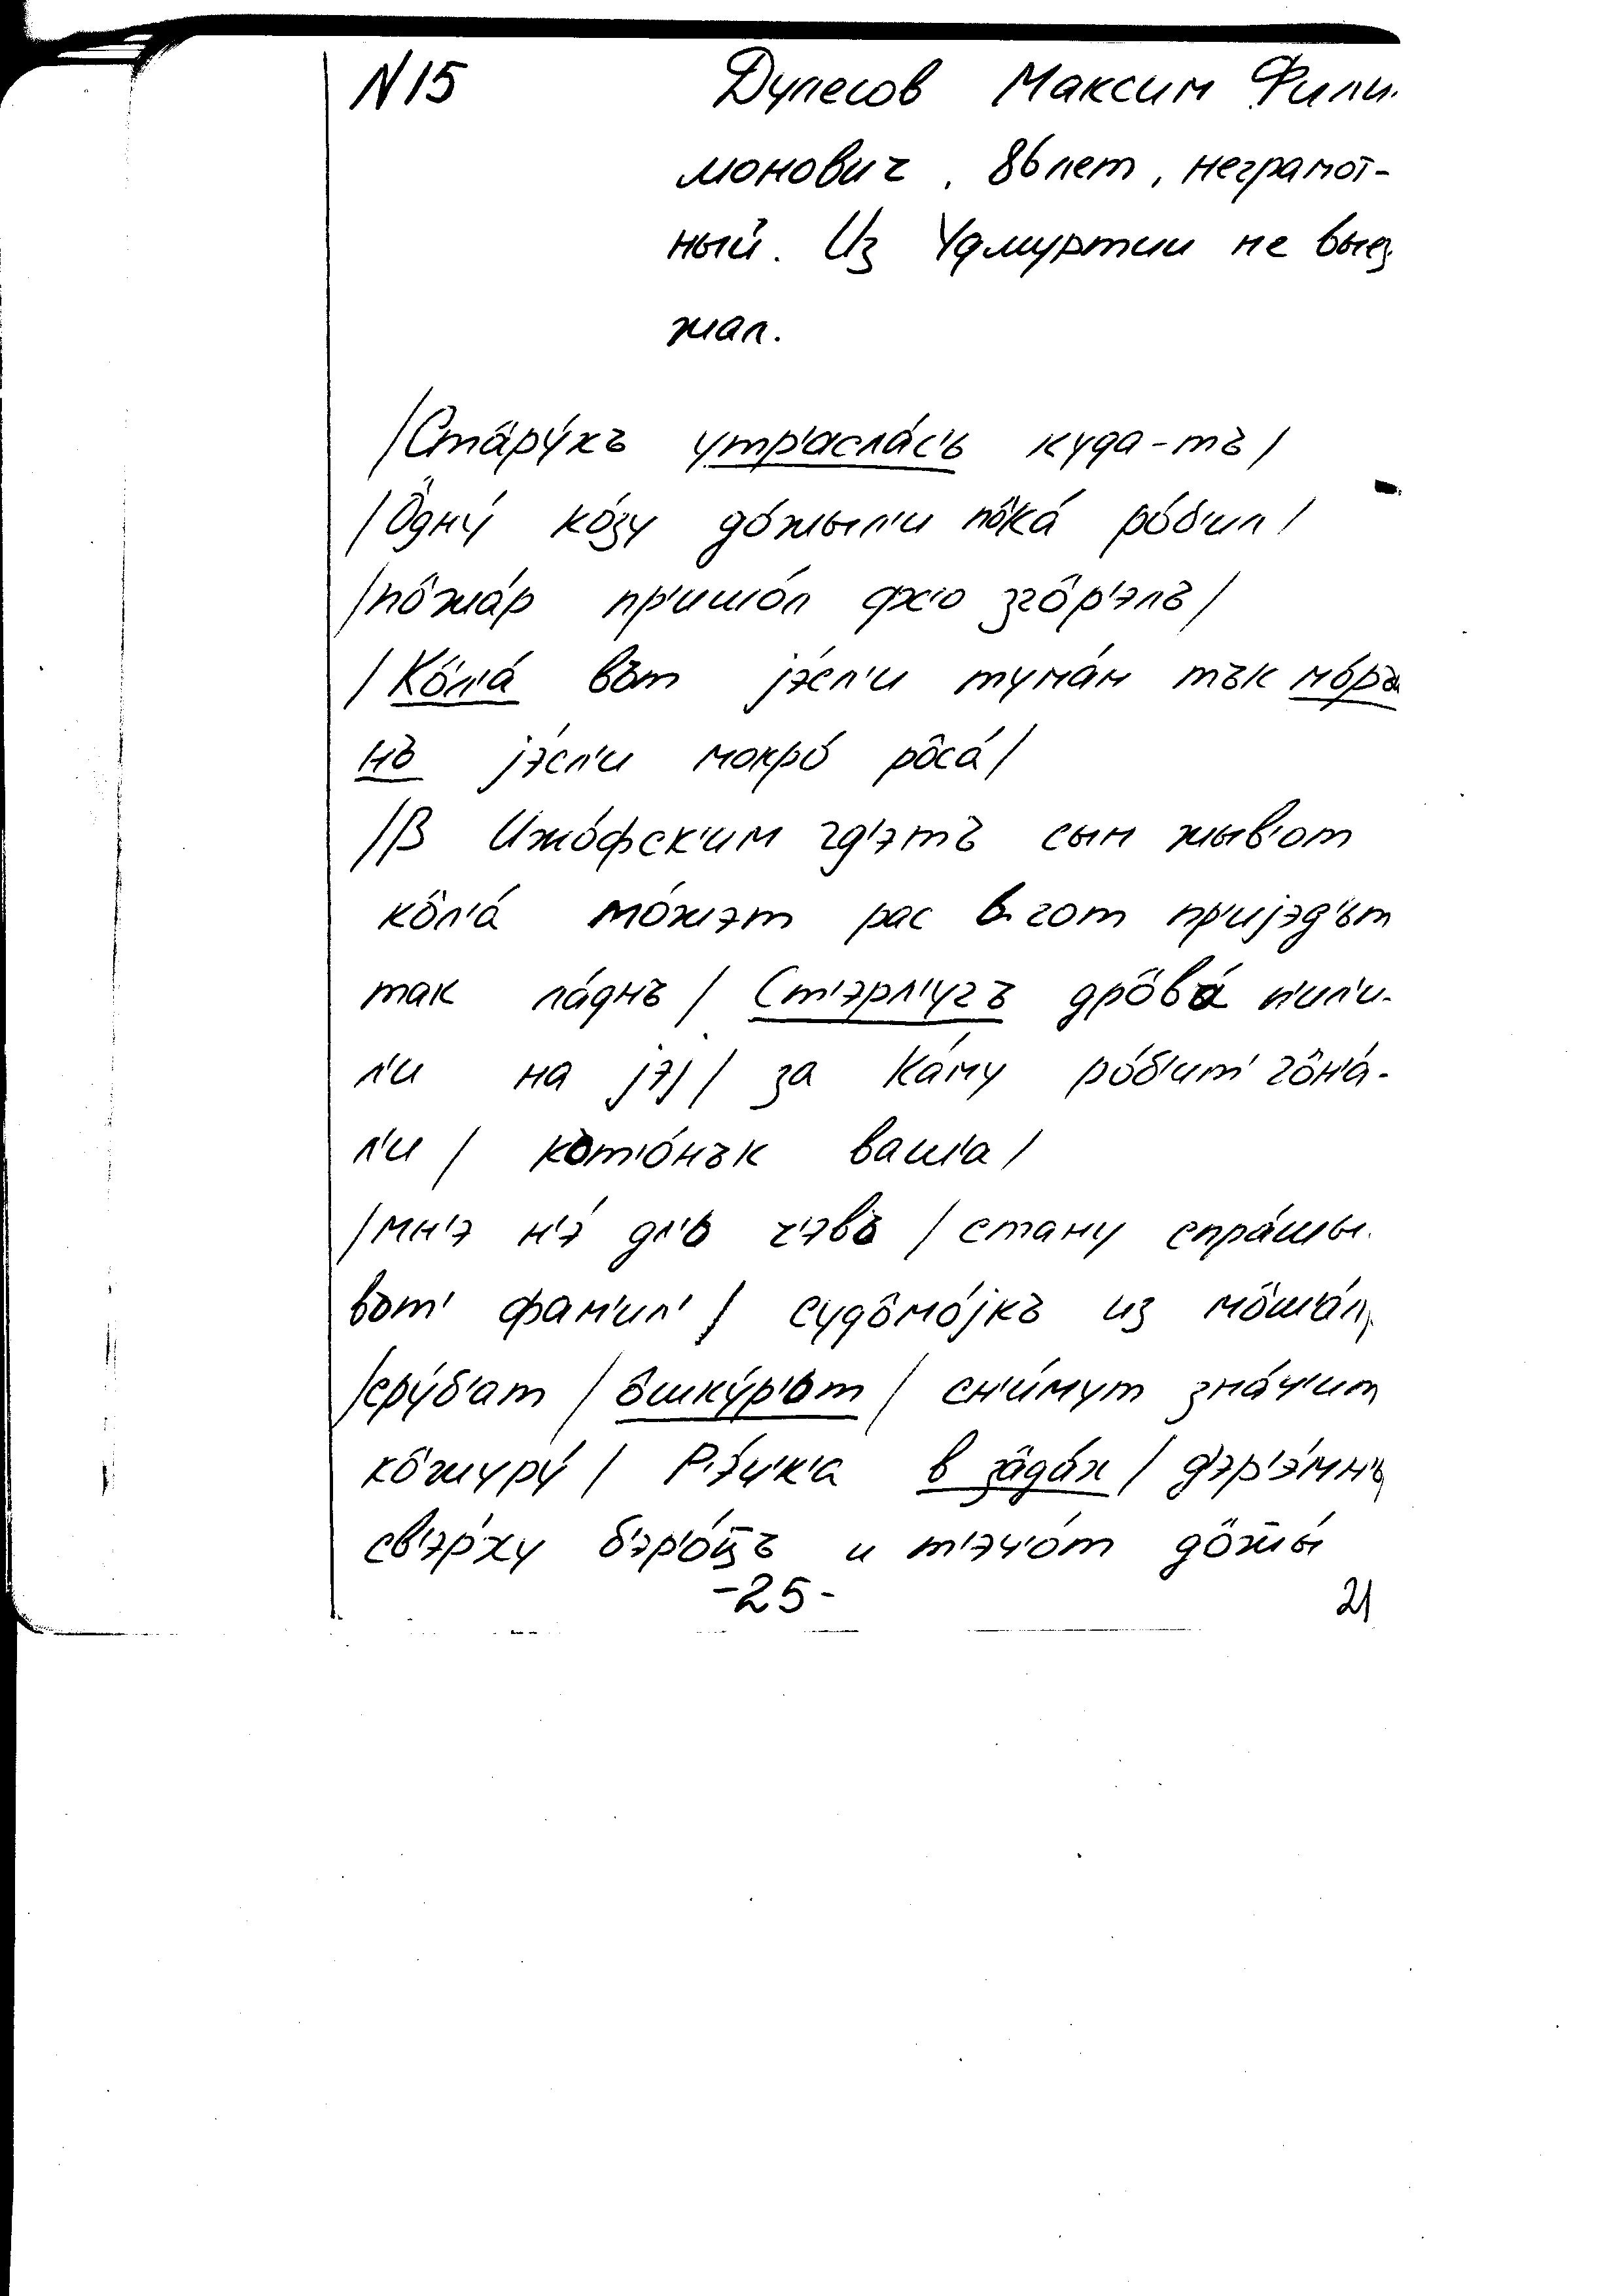 N15 Дулесов Максим Фили-
монович, 86 лет, неграмот-
ный. Из Удмуртии не выез
жал.
/Ста̂ру́хъ утр'асла́с'ъ куда-тъ/
/О̂дну́ ко́зу до́жыл'и по̂ка́ ро́б'ил/
/по̂жа́р пр'ишо́л фс'о зго̂р'элъ/
/Ко̂л'а́ вът jэ́сл'и тума́н тък мо́ръ
нъ jэ́сл'и мокро́ ро̂са́/
/В Ижо́фск'им гд'этъ сын жыв'от
ко̂л'а́ мо́жэт рас в гот пр'иjэд'ът
так ла́днъ / Ст'эрл'угъ дро̂ва́ п'ил'и-
л'и на jэj / за Ка́му ро́б'ит' го̂н'а́-
л'и / кот'о́нък ваш'а/
/мн'э н'э́ дл'ъ ч'эвъ / стану спра́шы-
вът' фам'ил' / судо̂мо́jкъ из мо̂ш'а́л
/сру́б'ат / о̂шку́р'ът / сн'и́мут зна́ч'ит
ко̂журу́ / Р'э́ч'к'а в за̂да́х / д'эр'э́мн'ъ
св'э́рху б'эр'о́цъ и т'эч'о́т до̂жы́
-25-
21